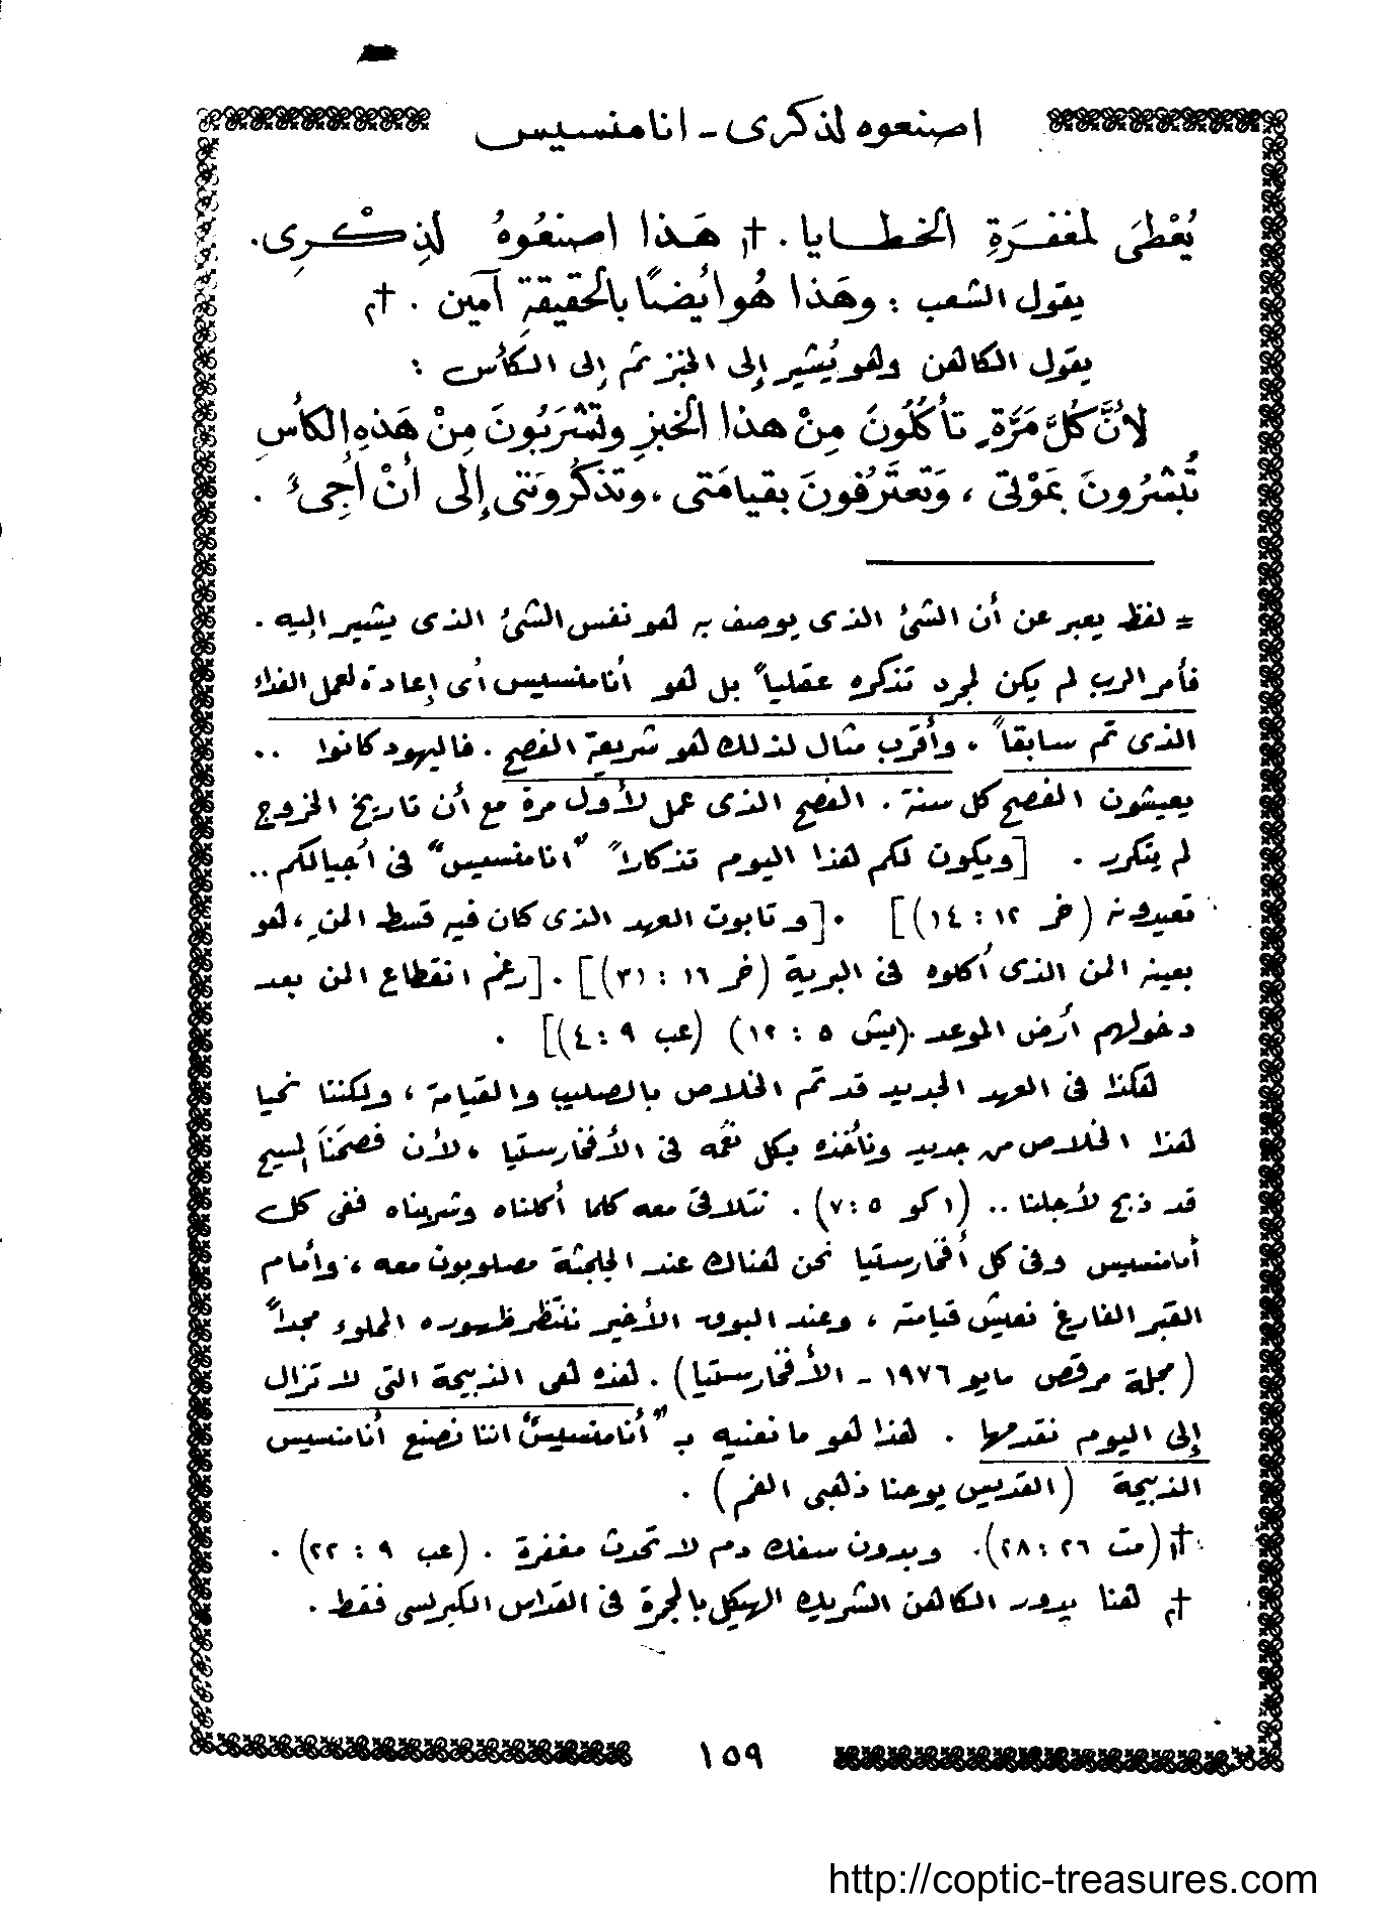 اصنعوه لذكرى - انامنسيس
يُعْطَى لمغفـرَةِ الخطـايا . †١ هَـذا اصنعُوهُ لذِكْـرِى.
يقول الشعب : وهَذا هُو أيضًا بالحقيقةِ آمين . †٢
يقول الكاهن وهو يُشير إلى الخبز ثم إلى الكأس :
لأنَّ كُلَّ مَرَّةٍ تأكُلُونَ مِنْ هذا الخبزِ وتشْرَبُونَ مِنْ هَذهِ الكأسِ
تُبشرُونَ بمَوْتى ، وَتعتَرفُونَ بقيامَتى ، وتذكُرُونَنى إلى أنْ أجِىءُ .
= لفظ يعبر عن أن الشئ الذى يوصف به هو نفس الشئ الذى يشير إليه .
فأمر الرب لم يكن لمجرد تذكره عقلياً بل هو أنامنسيس أى إعادة لعمل الفداء
الذى تم سابقاً . وأقرب مثال لذلك هو شريعة الفصح . فاليهود كانوا ..
يعيشون الفصح كل سنة . الفصح الذى عمل لأول مرة مع أن تاريخ الخروج
لم يتكرر . [ويكون لكم هذا اليوم تذكاراً "انامنسيس" فى أجيالكم ..
تعيدونه (خر ١٢ : ١٤)] . [و تابوت العهد الذى كان فيه قسط المن ، هو
بعينه المن الذى أكلوه فى البرية (خر ١٦ : ٣١)] . [رغم انقطاع المن بعد
دخولهم أرض الموعد . (يش ٥ : ١٢) (عب ٩ : ٤)] .
هكذا فى العهد الجديد قد تم الخلاص بالصليب والقيامة ، ولكننا نحيا
هذا الخلاص من جديد ونأخذه بكل نعمه فى الأفخارستيا ، لأن فصحنا المسيح
قد ذبح لأجلنا .. (١ كو ٥ : ٧) . نتلاقى معه كلما أكلناه وشربناه ففى كل
أنامنسيس وفى كل أفخارستيا نحن هناك عند الجلجثة مصلوبون معه ، وأمام
القبر الفارغ نعيش قيامته ، وعند البوق الأخير ننتظر ظهوره المملوء مجداً
(مجلة مرقص مايو ١٩٧٦ - الأفخارستيا) . هذه هى الذبيحة التى لا تزال
إلى اليوم نقدمها . هذا هو ما نعنيه بـ "أنامنسيس" اننا نصنع أنامنسيس
الذبيحة (القديس يوحنا ذهبى الفم) .
†١ (مت ٢٦ : ٢٨) . وبدون سفك دم لا تحدث مغفرة . (عب ٩ : ٢٢) .
†٢ هنا يدور الكاهن الشريك الهيكل بالمجمرة فى القداس الكيرلسى فقط .
١٥٩
http://coptic-treasures.com